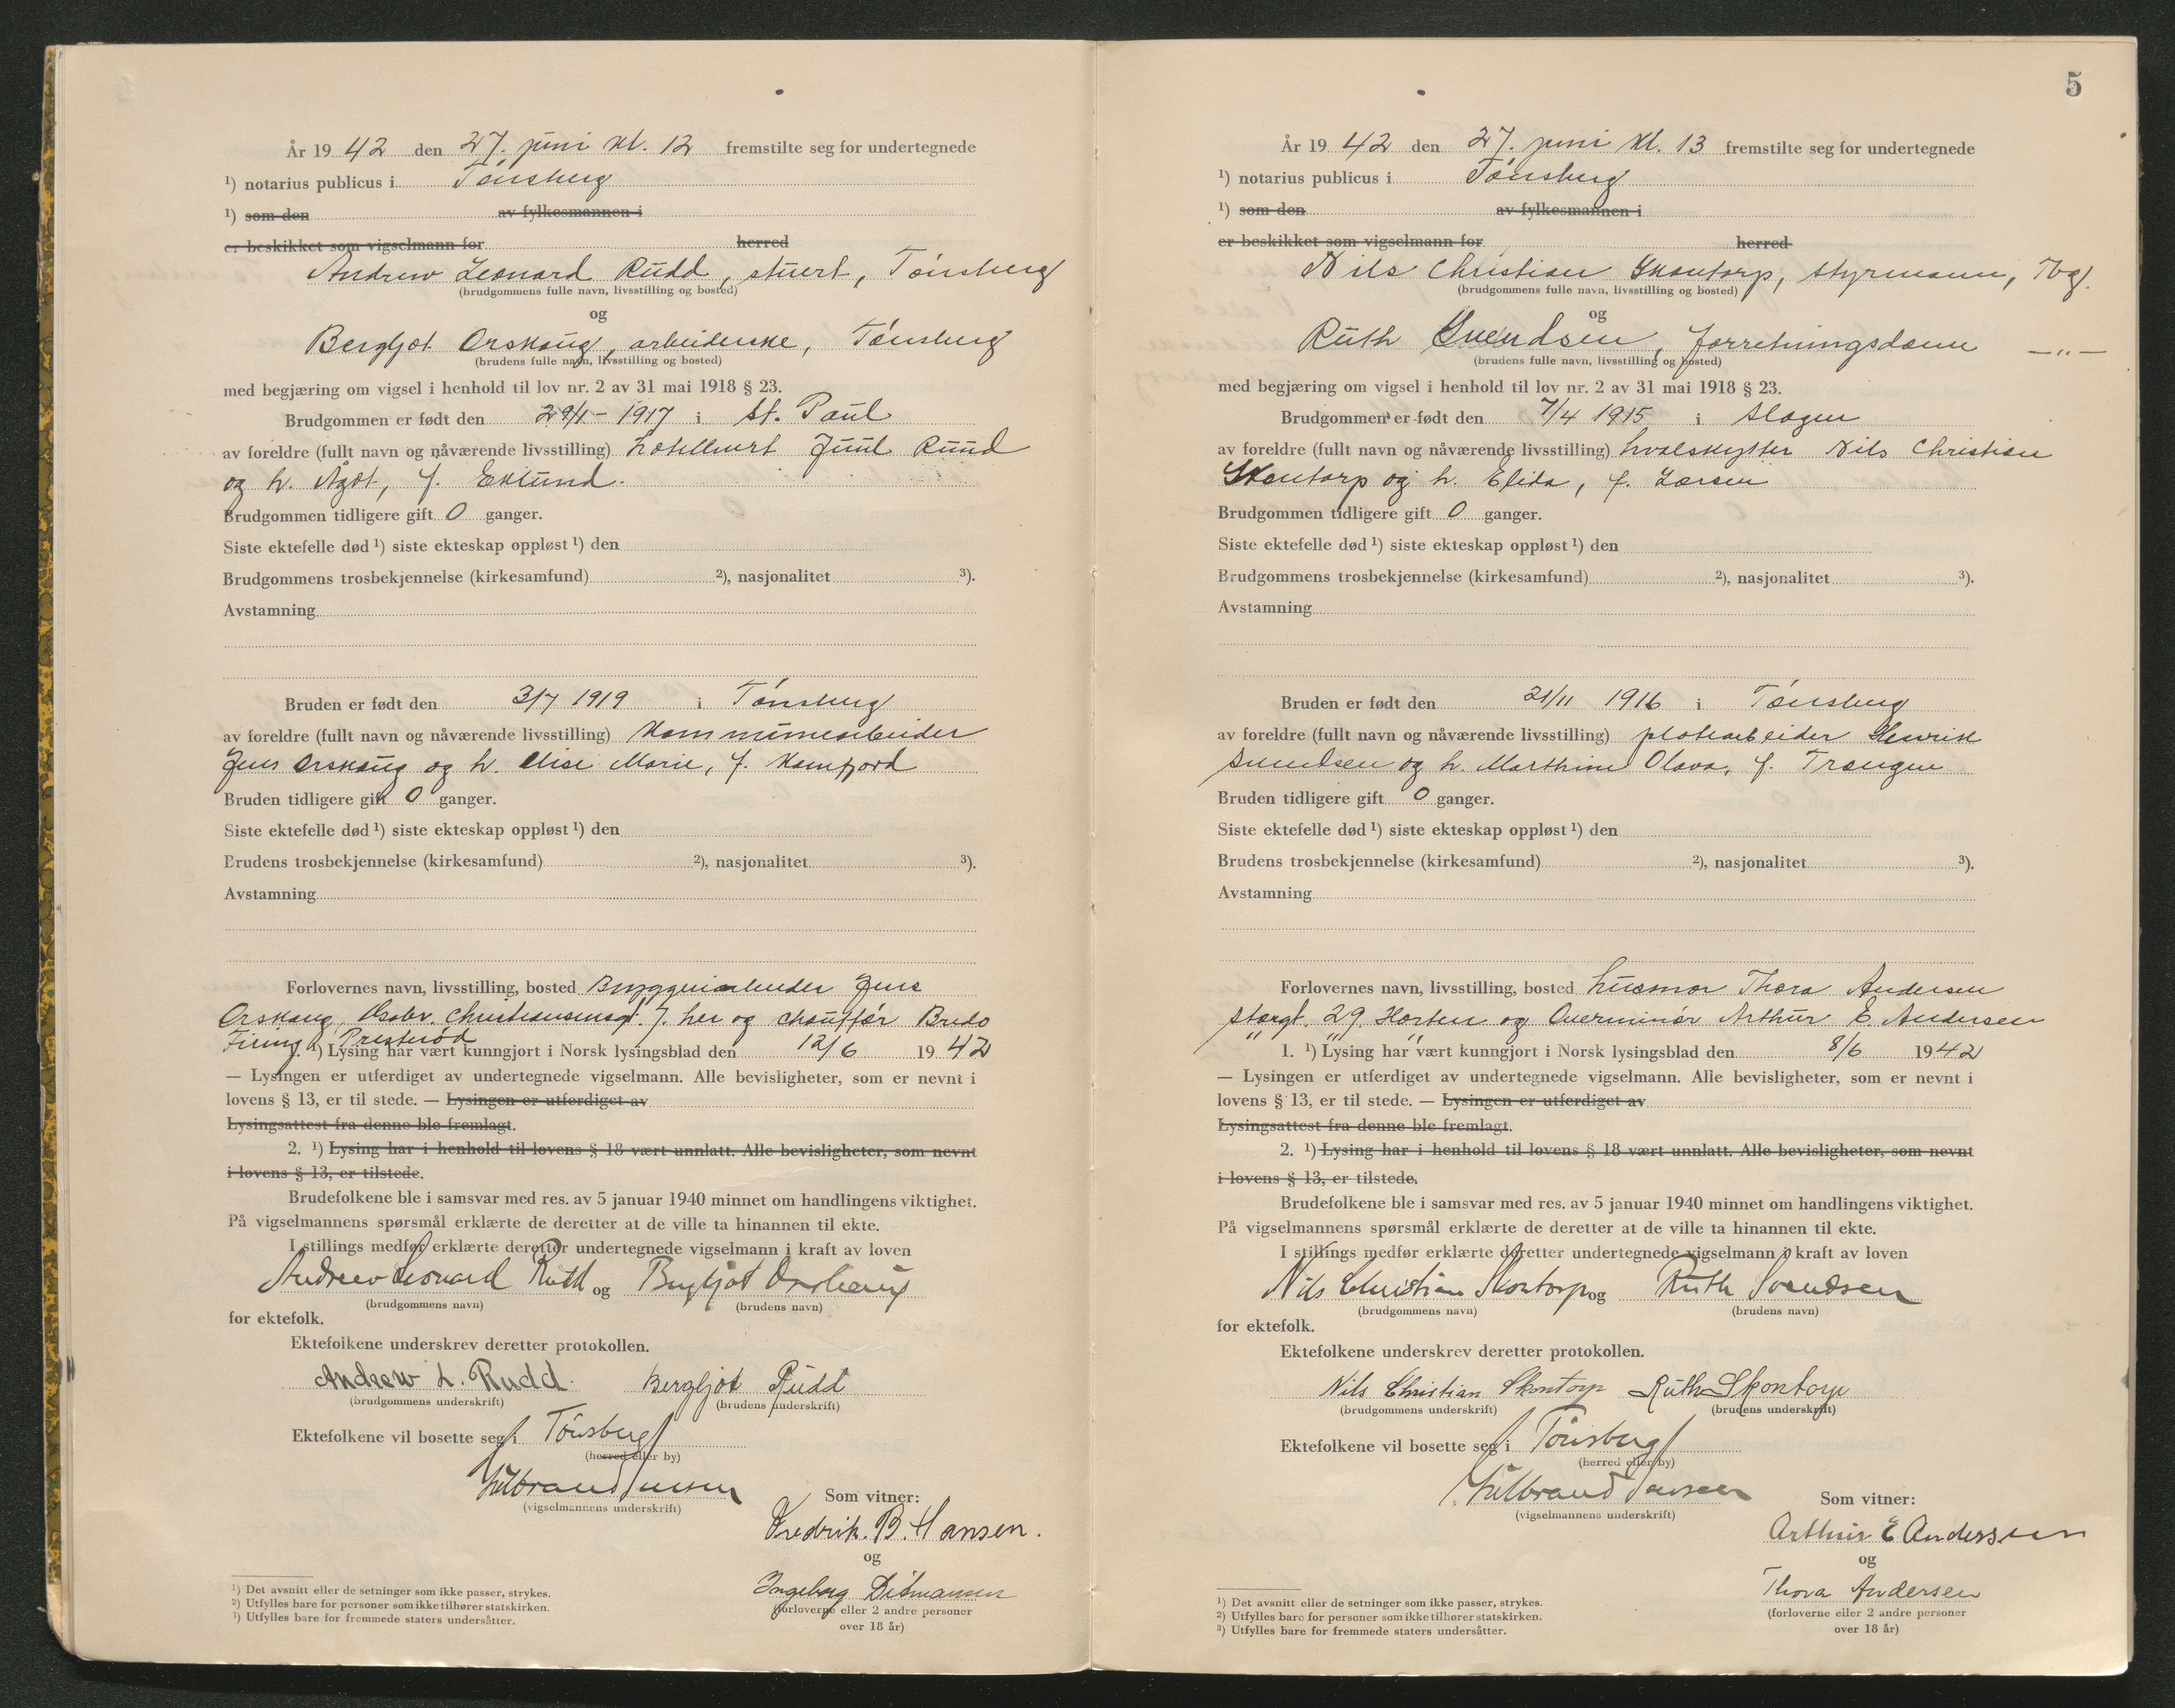 År 1942 den 27. juni kl. 12 fremstilte seg for undertegnede
¹) notarius publicus i Tönsberg
¹) som den av fylkesmannen i
er beskikket som vigselmann for herred
Andrew Leonard Rudd, stuert, Tönsberg
(brudgommens fulle navn, livsstilling og bosted)
og
Bergljot Orskaug, arbeiderske, Tönsberg
(brudens fulle navn, livsstilling og bosted)
med begjæring om vigsel i henhold til lov nr. 2 av 31 mai 1918 § 23.
Brudgommen er født den 29/1 - 1917 i St. Paul
av foreldre (fullt navn og nåværende livsstilling) hotellvert Juul Ruud
og h. Ågot, f. Eklund.
Brudgommen tidligere gift 0 ganger.
Siste ektefelle død ¹) siste ekteskap oppløst ¹) den
Brudgommens trosbekjennelse (kirkesamfund) ²), nasjonalitet ³).
Avstamning
Bruden er født den 3/7 1919 i Tönsberg
av foreldre (fullt navn og nåværende livsstilling) kommunearbeider
Jens Orskaug og h. Elise Marie, f. Kamfjord
Bruden tidligere gift 0 ganger.
Siste ektefelle død ¹) siste ekteskap oppløst ¹) den
Brudens trosbekjennelse (kirkesamfund) ²), nasjonalitet ³).
Avstamning
Forlovernes navn, livsstilling, bosted Bryggeriarbeider Jens
Orskaug, 7. her og chauffør Bredo
Firing, Presterød
1. ¹) Lysing har vært kunngjort i Norsk lysingsblad den 12/6 1942
— Lysingen er utferdiget av undertegnede vigselmann. Alle bevisligheter, som er nevnt i
lovens § 13, er til stede. — Lysingen er utferdiget av
Lysingsattest fra denne ble fremlagt.
2. ¹) Lysing har i henhold til lovens § 18 vært unnlatt. Alle bevisligheter, som nevnt
i lovens § 13, er tilstede.
Brudefolkene ble i samsvar med res. av 5 januar 1940 minnet om handlingens viktighet.
På vigselmannens spørsmål erklærte de deretter at de ville ta hinannen til ekte.
I stillings medfør erklærte deretter undertegnede vigselmann i kraft av loven
Andrew Leonard Rudd og Bergljot Orskaug
(brudgommens navn) (brudens navn)
for ektefolk.
Ektefolkene underskrev deretter protokollen.
Andrew L. Rudd. Bergljot Rudd
(brudgommens underskrift) (brudens underskrift)
Ektefolkene vil bosette seg i Tönsberg
(herred eller by)
Hilbrand Jensen
(vigselmannens underskrift)
Som vitner:
Fredrik. B. Hansen.
og
Ingeborg Ditmansen
(forloverne eller 2 andre personer
over 18 år)
¹) Det avsnitt eller de setninger som ikke passer, strykes.
²) Utfylles bare for personer som ikke tilhører statskirken.
³) Utfylles bare for fremmede staters undersåtter.
5
År 1942 den 27. juni kl. 13 fremstilte seg for undertegnede
¹) notarius publicus i Tönsberg
¹) som den av fylkesmannen i
er beskikket som vigselmann for herred
Nils Christian Skontorp, styrmann, Tbg.
(brudgommens fulle navn, livsstilling og bosted)
og
Ruth Svendsen, forretningsdame — " —
(brudens fulle navn, livsstilling og bosted)
med begjæring om vigsel i henhold til lov nr. 2 av 31 mai 1918 § 23.
Brudgommen er født den 7/4 1915 i Slagen
av foreldre (fullt navn og nåværende livsstilling) hvalskytter Nils Christian
Skontorp og h. Elida, f. Larsen
Brudgommen tidligere gift 0 ganger.
Siste ektefelle død ¹) siste ekteskap oppløst ¹) den
Brudgommens trosbekjennelse (kirkesamfund) ²), nasjonalitet ³).
Avstamning
Bruden er født den 21/11 1916 i Tönsberg
av foreldre (fullt navn og nåværende livsstilling) platearbeider Henrik
Svendsen og h. Marthine Olava, f. Trangen
Bruden tidligere gift 0 ganger.
Siste ektefelle død ¹) siste ekteskap oppløst ¹) den
Brudens trosbekjennelse (kirkesamfund) ²), nasjonalitet ³).
Avstamning
Forlovernes navn, livsstilling, bosted husmor Thora Andersen
Storgt. 29. Horten og Overminør Arthur E. Andersen
" " "
1. ¹) Lysing har vært kunngjort i Norsk lysingsblad den 8/6 1942
— Lysingen er utferdiget av undertegnede vigselmann. Alle bevisligheter, som er nevnt i
lovens § 13, er til stede. — Lysingen er utferdiget av
Lysingsattest fra denne ble fremlagt.
2. ¹) Lysing har i henhold til lovens § 18 vært unnlatt. Alle bevisligheter, som nevnt
i lovens § 13, er tilstede.
Brudefolkene ble i samsvar med res. av 5 januar 1940 minnet om handlingens viktighet.
På vigselmannens spørsmål erklærte de deretter at de ville ta hinannen til ekte.
I stillings medfør erklærte deretter undertegnede vigselmann i kraft av loven
Nils Christian Skontorp og Ruth Svendsen
(brudgommens navn) (brudens navn)
for ektefolk.
Ektefolkene underskrev deretter protokollen.
Nils Christian Skontorp Ruth Skontorp
(brudgommens underskrift) (brudens underskrift)
Ektefolkene vil bosette seg i Tönsberg
(herred eller by)
Hilbrand Jensen
(vigselmannens underskrift)
Som vitner:
Arthur E Andersen
og
Thora Andersen
(forloverne eller 2 andre personer
over 18 år)
¹) Det avsnitt eller de setninger som ikke passer, strykes.
²) Utfylles bare for personer som ikke tilhører statskirken.
³) Utfylles bare for fremmede staters undersåtter.